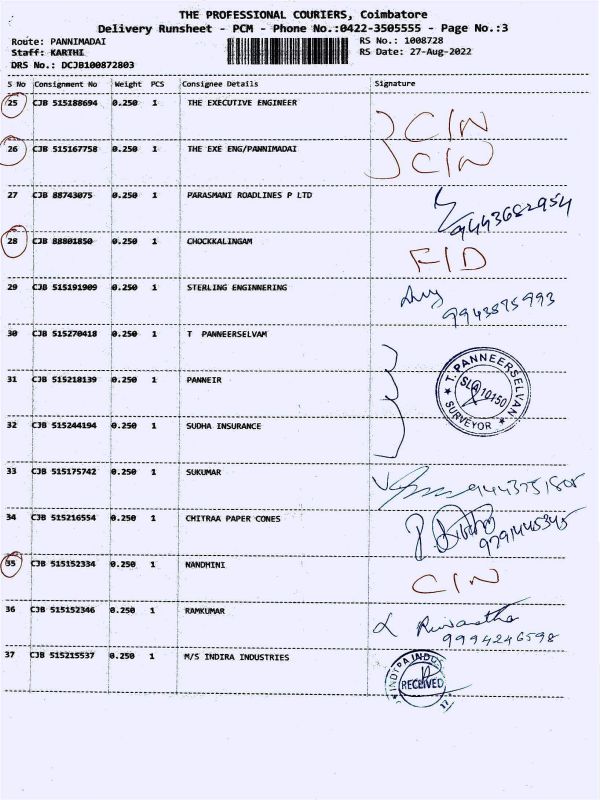 THE PROFESSIONAL COURIERS, Coimbatore
Delivery Runsheet - PCM - Phone No.:0422-3505555 - Page No.:3
Route: PANNIMADAI RS No.: 1008728
Staff: KARTHI RS Date: 27-Aug-2022
DRS No.: DCJB100872803
S No Consignment No Weight PCS Consignee Details Signature
25 CJB 515188694 0.250 1 THE EXECUTIVE ENGINEER C/N
26 CJB 515167758 0.250 1 THE EXE ENG/PANNIMADAI C/N
27 CJB 88743075 0.250 1 PARASMANI ROADLINES P LTD
9443682954
28 CJB 88801850 0.250 1 CHOCKKALINGAM
F/D
29 CJB 515191909 0.250 1 STERLING ENGINNERING
9943895993
30 CJB 515270418 0.250 1 T PANNEERSELVAM
31 CJB 515218139 0.250 1 PANNEIR
T. PANNEERSELVAN
SLA 10150
SURVEYOR
32 CJB 515244194 0.250 1 SUDHA INSURANCE
33 CJB 515175742 0.250 1 SUKUMAR
34 CJB 515216554 0.250 1 CHITRAA PAPER CONES
9791445345
35 CJB 515152334 0.250 1 NANDHINI
C/N
36 CJB 515152346 0.250 1 RAMKUMAR
9994246598
37 CJB 515215537 0.250 1 M/S INDIRA INDUSTRIES
RECEIVED